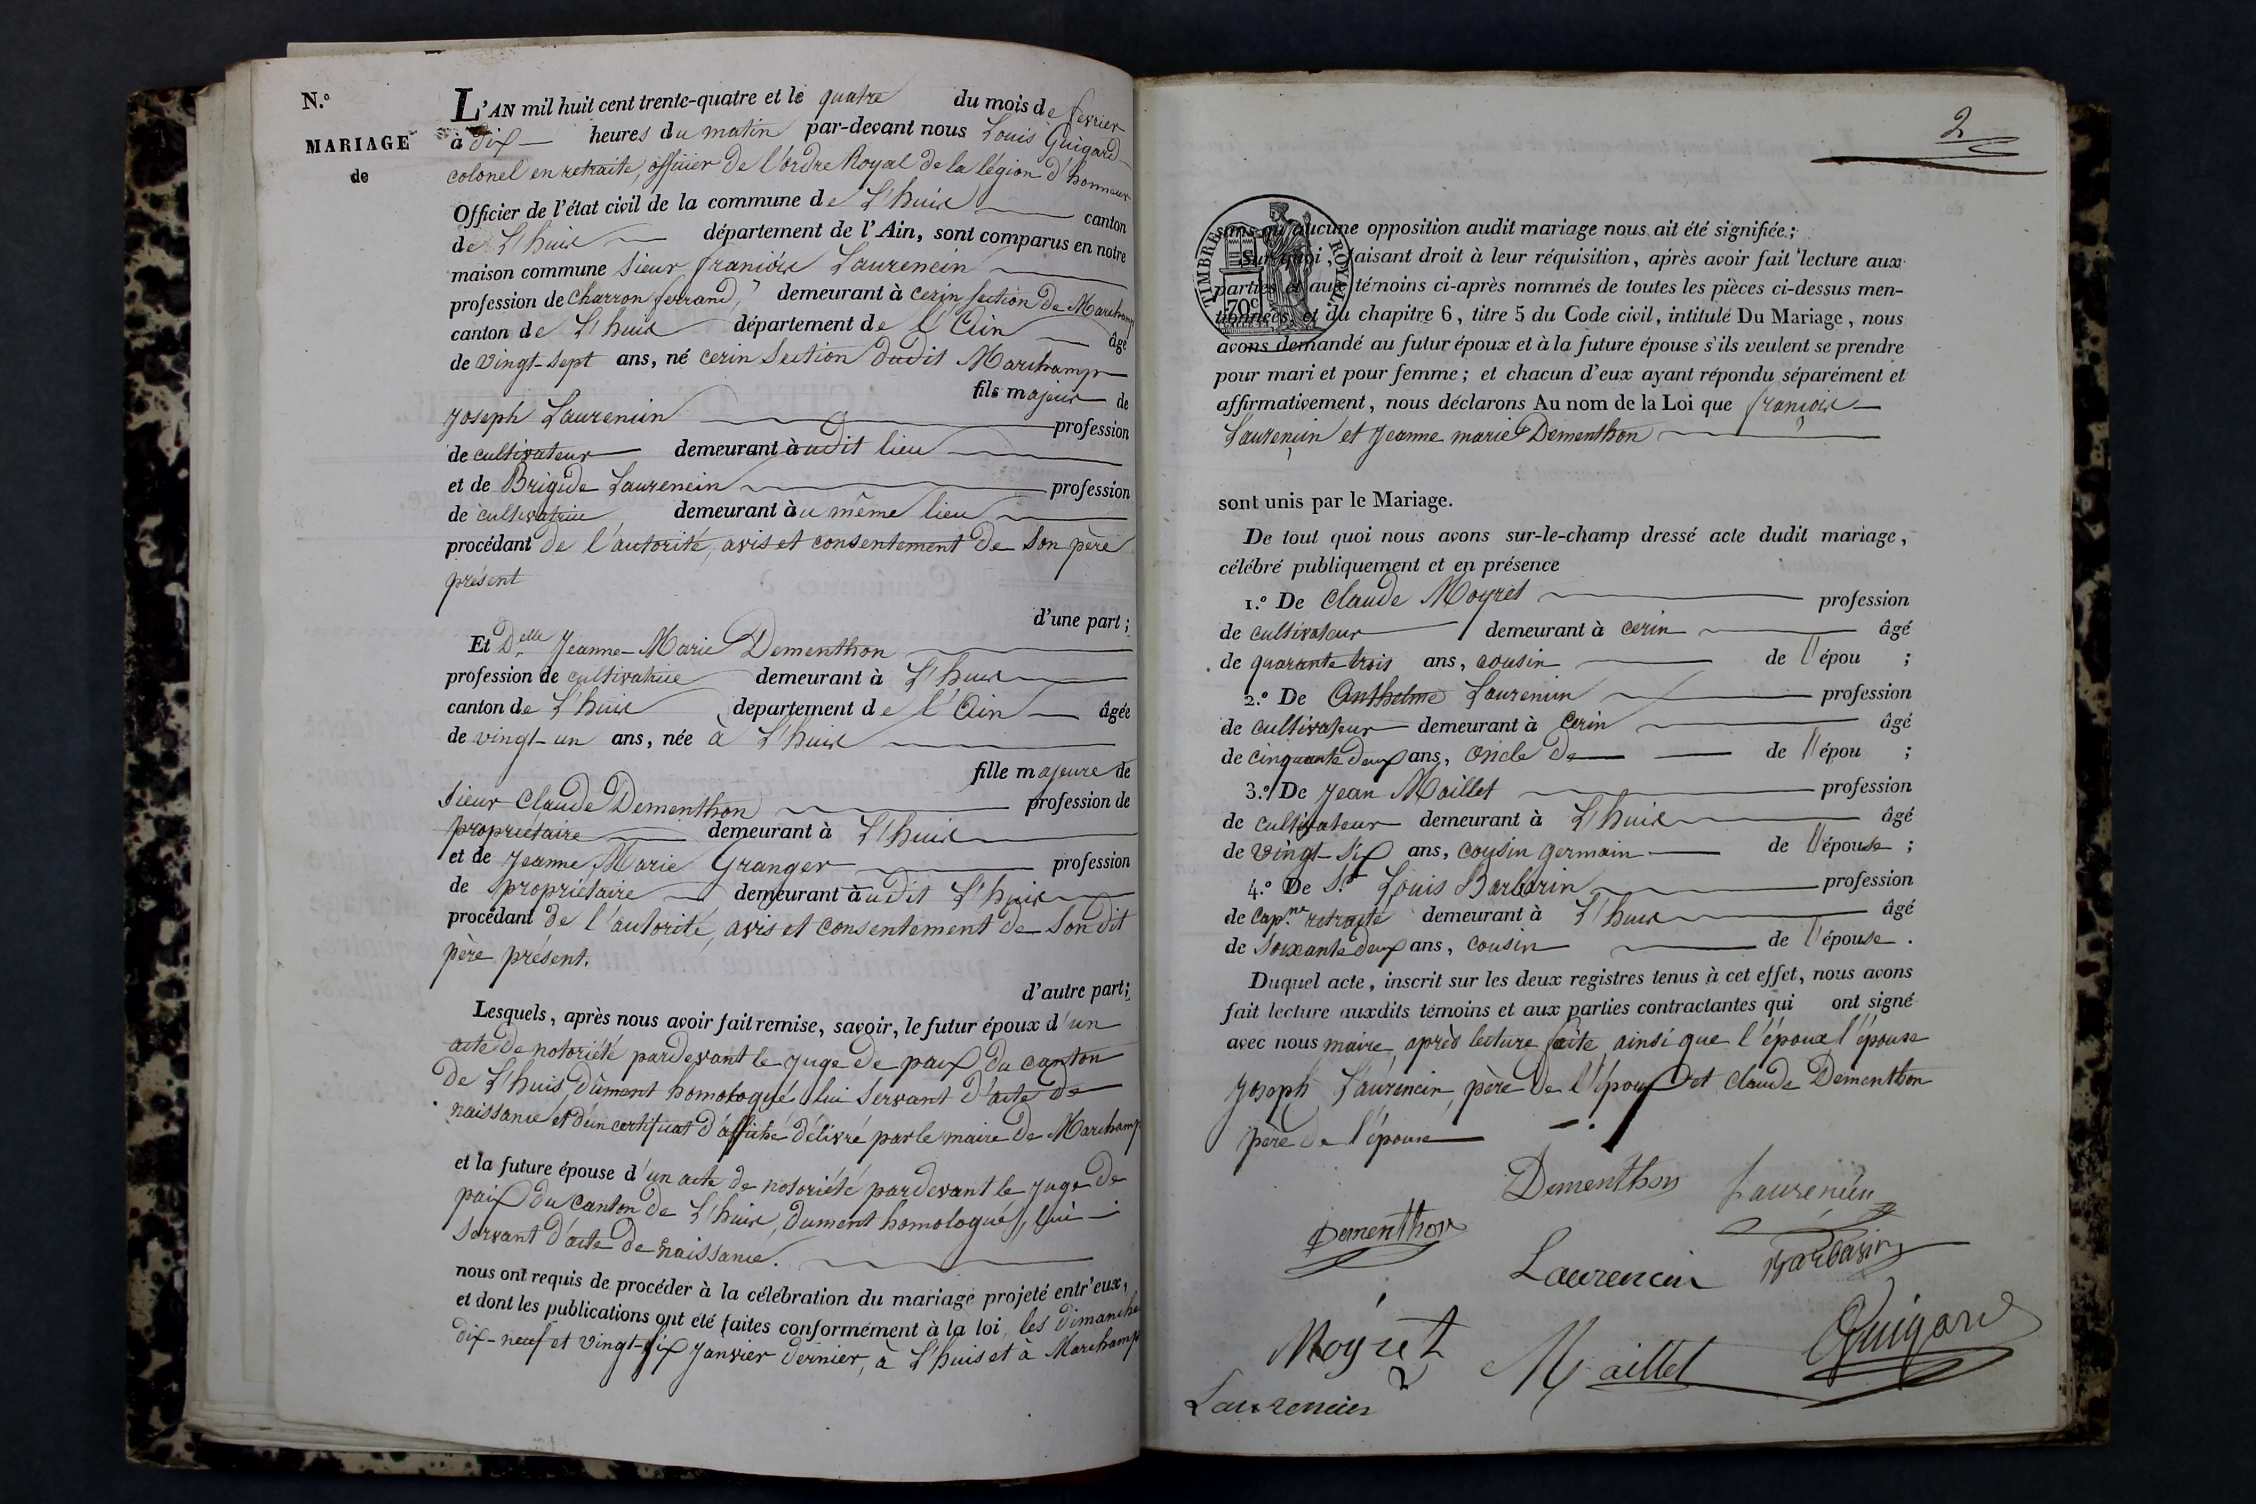 N.º
MARIAGE
de
L'AN mil huit cent trente-quatre et le quatre du mois de fevrier
à dix heures du matin par-devant nous Louis Guigard
colonel en retraite, officier de l'ordre Royal de la légion d'honneur
Officier de l'état civil de la commune de L'huis canton
de L'huis département de l'Ain, sont comparus en notre
maison commune sieur françois Laurencin
profession de charron ferrand, demeurant à cerin section de Marchamp
canton de L'huis département de l'Ain âgé
de vingt-sept ans, né cerin section dudit Marchamp
fils majeur de
joseph Laurencin profession
de cultivateur demeurant à udit lieu
et de Brigide Laurencin profession
de cultivatrice demeurant à u même lieu
procédant de l'autorité, avis et consentement de son père
présent
d'une part ;
Et Delle Jeanne-Marie Dementhon
profession de cultivatrice demeurant à L'huis
canton de L'huis département de l'Ain âgée
de vingt-un ans, née à L'huis
fille majeure de
sieur Claude Dementhon profession de
propriétaire demeurant à L'huis
et de Jeanne Marie Granger profession
de propriétaire demeurant à udit L'huis
procédant de l'autorité, avis et consentement de son dit
père présent.
d'autre part;
Lesquels, après nous avoir fait remise, savoir, le futur époux d'un
acte de notoriété pardevant le juge de paix du canton
de L'huis dûment homologué lui servant d'acte de
naissance et d'un certificat d'affiche délivré par le maire de Marchamp
et la future épouse d'un acte de notoriété pardevant le juge de
paix du canton de L'huis, dument homologué, lui
servant d'acte de naissance.
nous ont requis de procéder à la célébration du mariage projeté entr'eux,
et dont les publications ont été faites conformément à la loi les dimanche
dix-neuf et vingt-six janvier dernier, à L'huis et à Marchamp
2
TIMBRE ROYAL
70c
sans qu'aucune opposition audit mariage nous ait été signifiée ;
Sur quoi, faisant droit à leur réquisition, après avoir fait lecture aux
parties et aux témoins ci-après nommés de toutes les pièces ci-dessus men-
tionnées, et du chapitre 6, titre 5 du Code civil, intitulé Du Mariage, nous
avons demandé au futur époux et à la future épouse s'ils veulent se prendre
pour mari et pour femme ; et chacun d'eux ayant répondu séparément et
affirmativement, nous déclarons Au nom de la Loi que françois
Laurençin et Jeanne marie Dementhon
sont unis par le Mariage.
De tout quoi nous avons sur-le-champ dressé acte dudit mariage,
célébré publiquement et en présence
1.º De Claude Moyret profession
de cultivateur demeurant à cerin âgé
de quarante trois ans, cousin de l'épou ;
2.º De Anthelme Laurencin profession
de cultivateur demeurant à Cerin âgé
de cinquante deux ans, oncle de de l'épou ;
3.º De Jean Maillet profession
de cultivateur demeurant à L'huis âgé
de vingt-six ans, cousin germain de l'épouse ;
4.º De Sr Louis Barbarin profession
de capne retraité demeurant à L'huis âgé
de soixante deux ans, cousin de l'épouse .
Duquel acte, inscrit sur les deux registres tenus à cet effet, nous avons
fait lecture auxdits témoins et aux parties contractantes qui ont signé
avec nous maire, après lecture faite, ainsi que l'époux l'épouse
joseph Laurencin, père de l'époux et claude Dementhon
père de l'épouse
Dementhon Laurencin
Dementhon
Laurencin Barbarin
Moyret Maillet Guigard
Laurencin